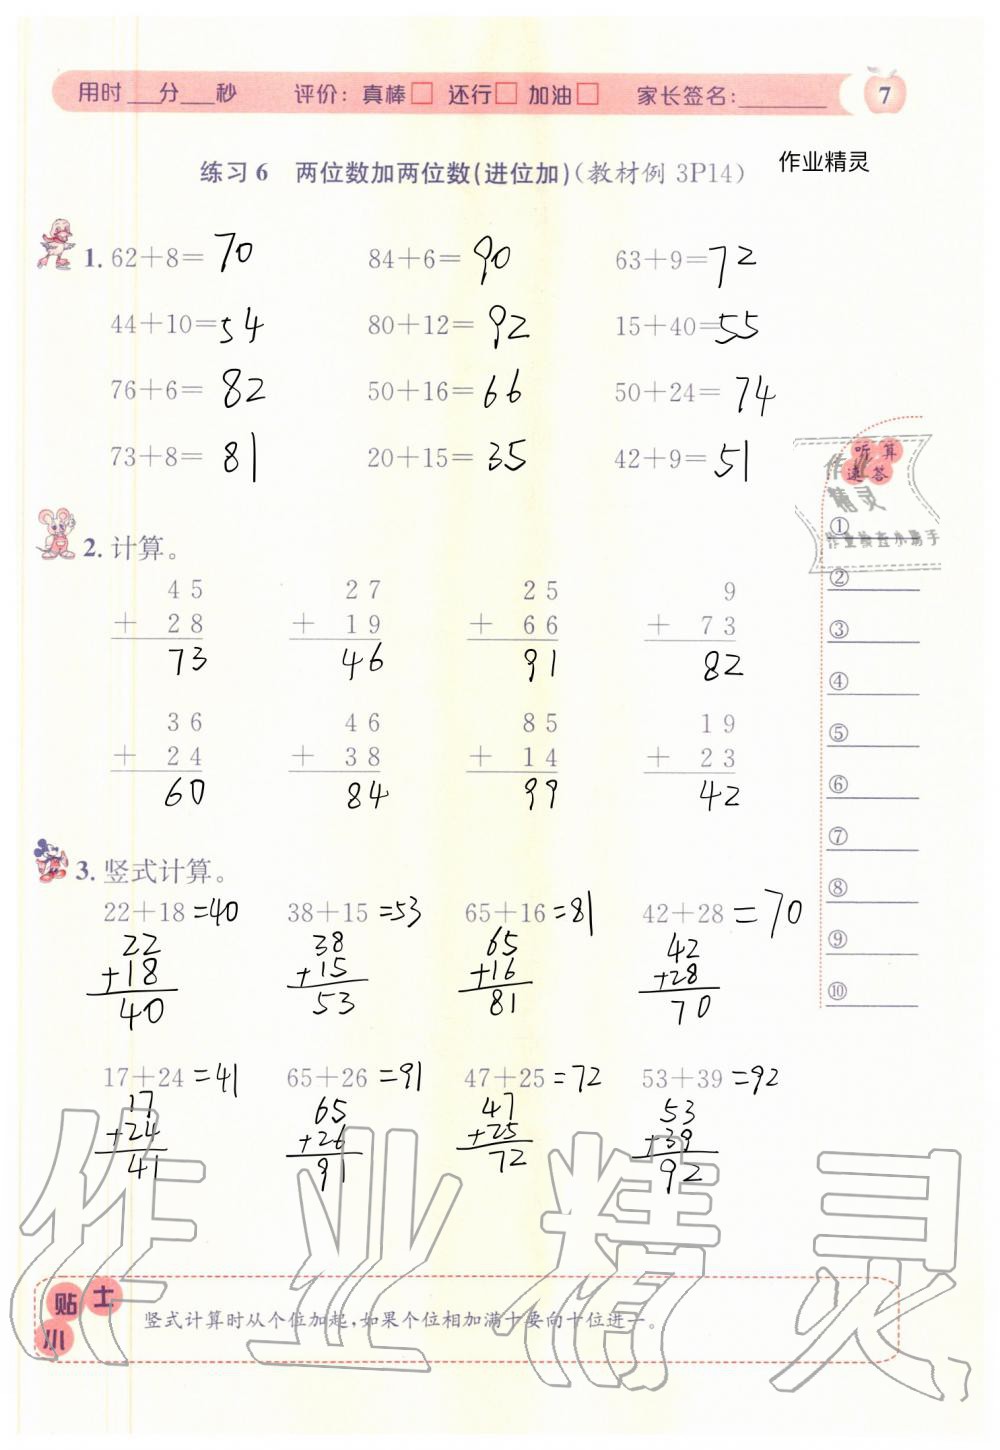 用时___分___秒 评价：真棒□ 还行□ 加油□ 家长签名：________ 7
练习6 两位数加两位数(进位加)(教材例 3P14) 作业精灵
1. 62+8=70 84+6=90 63+9=72
44+10=54 80+12=92 15+40=55
76+6=82 50+16=66 50+24=74
73+8=81 20+15=35 42+9=51
2. 计算。
45 27 25 9
+ 28 + 19 + 66 + 73
73 46 91 82
36 46 85 19
+ 24 + 38 + 14 + 23
60 84 99 42
3. 竖式计算。
22+18=40 38+15=53 65+16=81 42+28=70
22 38 65 42
+18 +15 +16 +28
40 53 81 70
17+24=41 65+26=91 47+25=72 53+39=92
17 65 47 53
+24 +26 +25 +39
41 91 72 92
听算
速答
作业
精灵
作业检查小助手
①
②
③
④
⑤
⑥
⑦
⑧
⑨
⑩
小贴士
竖式计算时从个位加起,如果个位相加满十要向十位进一。
作业精灵